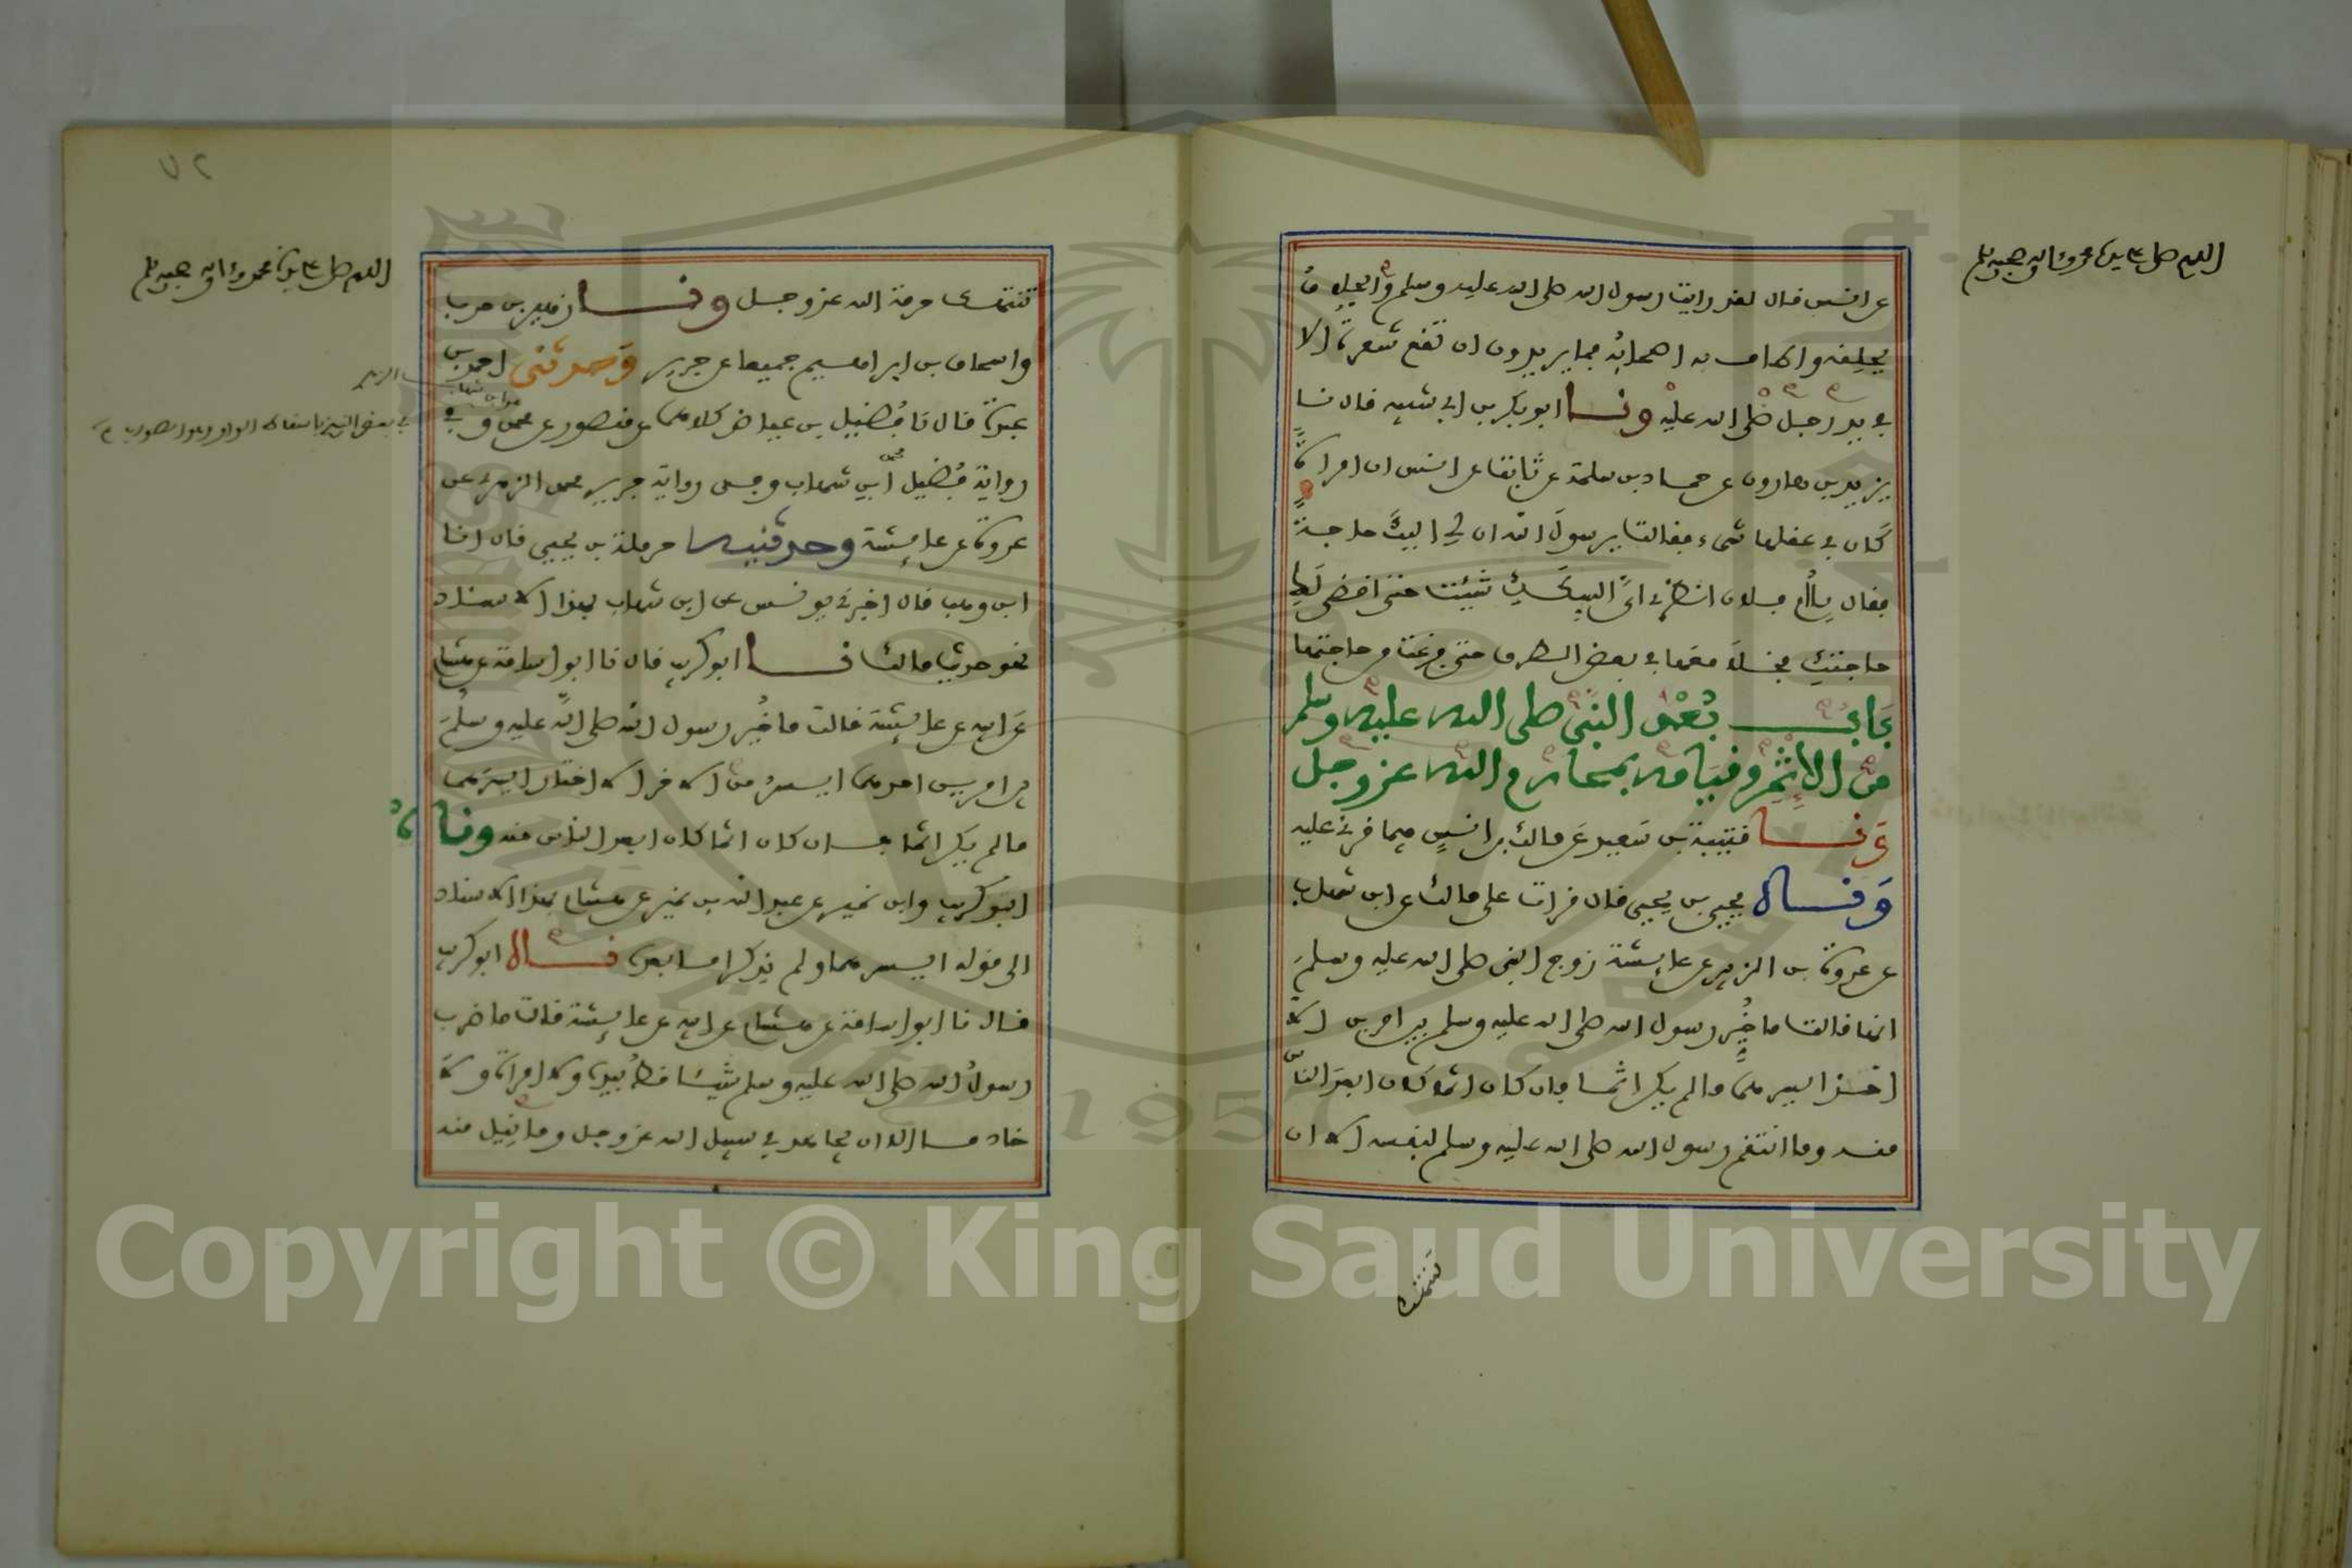 اللهم صل على سيدنا محمد وعلى اله وصحبه وسلم
عن انس قال لقد رايت رسول الله صلى الله عليه وسلم والحلاق
يحلقه واطاف به اصحابه فما يريدون ان تقع شعرة الا
في يد رجل صلى الله عليه ونا ابو بكر بن ابي شيبه قال نا
يزيد بن هارون عن حماد بن سلمة عن ثابت عن انس ان امراة
كان في عقلها شيء فقالت يرسول الله ان لي اليك حاجة
فقال يا ام فلان انظري اي السكك شئت حتى اقضي لك
حاجتك فخلا معها في بعض الطرق حتى فرغت من حاجتها
باب بعد النبي صلى الله عليه وسلم
من الاثم وقيامه بمحارم الله عز وجل
ونا قتيبة بن سعيد عن مالك بن انس فيما قرئ عليه
ونا يحيى بن يحيى قال قرات على مالك عن ابن شهاب
عن عروة بن الزبير عن عايشة زوج النبي صلى الله عليه وسلم
انها قالت ما خير رسول الله صلى الله عليه وسلم بين امرين الا
اخذ ايسرهما ما لم يكن اثما فان كان اثما كان ابعد الناس
منه وما انتقم رسول الله صلى الله عليه وسلم لنفسه الا ان
تنتهك
٧٢
اللهم صل على سيدنا محمد وعلى اله وصحبه وسلم
تنتهك حرمة الله عز وجل ونا زهير بن حرب
واسحاق بن ابراهيم جميعا عن جرير وحدثني احمد بن
عبدة قال نا فضيل بن عياض كلاهما عن منصور عن محمد وفي
رواية فضيل ابن شهاب وفي رواية جرير محمد الزهري عن
عروة عن عايشة وحدثنيه حرملة بن يحيى قال انا
ابن وهب قال اخبرني يونس عن ابن شهاب بهذا الاسناد
نحو حديث مالك نا ابو كريب قال نا ابو اسامة عن هشام
عن ابيه عن عايشة قالت ما خير رسول الله صلى الله عليه وسلم
بين امرين احدهما ايسر من الاخر الا اختار ايسرهما
ما لم يكن اثما فان كان اثما كان ابعد الناس منه وناه
ابو كريب وابن نمير عن عبد الله بن نمير عن هشام بهذا الاسناد
الى قوله ايسرهما ولم يذكرا ما بعده نا ابو كريب
قال نا ابو اسامة عن هشام عن ابيه عن عايشة قالت ما ضرب
رسول الله صلى الله عليه وسلم شيئا قط بيده ولا امراة ولا
خادما الا ان يجاهد في سبيل الله عز وجل وما نيل منه
Copyright © King Saud University
1957